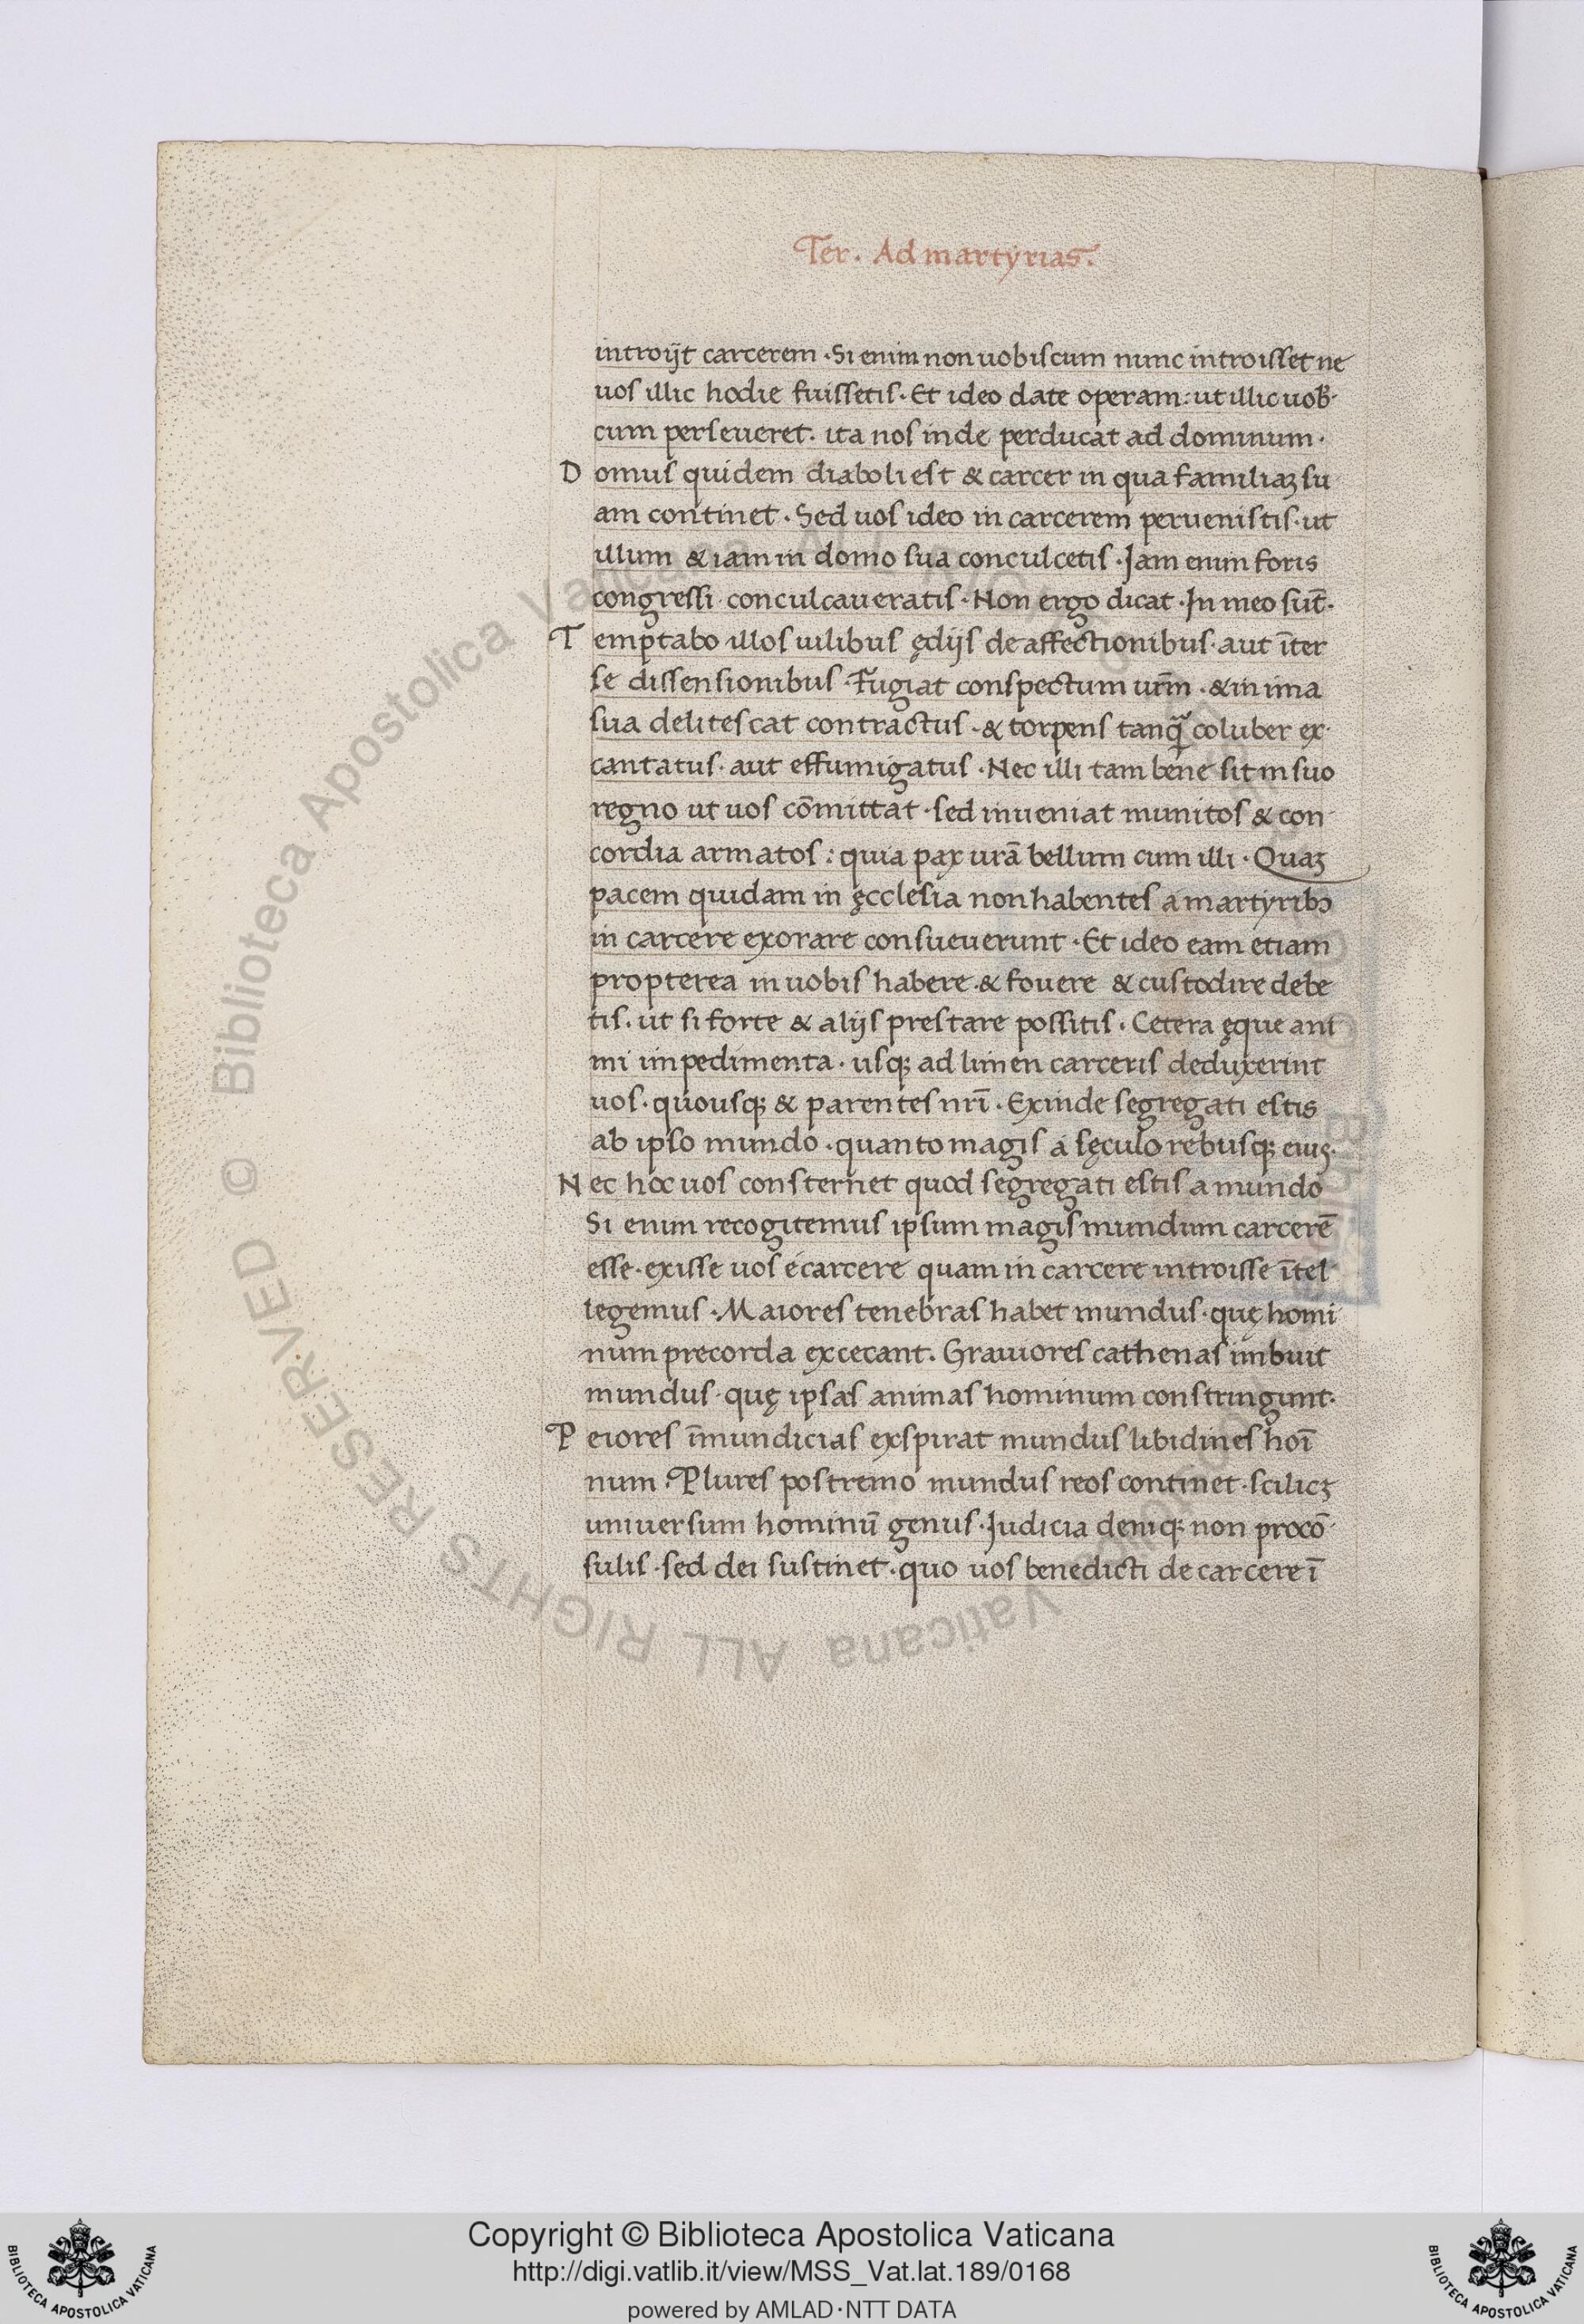 Ter. Ad martyrias.
introijt carcerem · Si enim non uobiscum nunc introisset ne
uos illic hodie fuissetis · Et ideo date operam : ut illic uob·
cum perseueret · ita nos inde perducat ad dominum ·
Domus quidem diaboli est & carcer in qua familiaꝫ su
am continet · Sed uos ideo in carcerem peruenistis · ut
illum & iam in domo sua conculcetis · Jam enim foris
congressi conculcaueratis · Non ergo dicat · In meo sut̄ ·
Temptabo illos uilibus ędijs de affectionibus · aut īter
se dissensionibus · Fugiat conspectum ur̄m · & in ima
sua delitescat contractus · & torpens tanq̃ coluber ex·
cantatus · aut effumigatus · Nec illi tam bene sit in suo
regno ut uos cōmittat · sed inueniat munitos & con·
cordia armatos : quia pax urā bellum cum illi · Quaꝫ
pacem quidam in ęcclesia non habentes a martyribꝰ
in carcere exorare consueuerunt · Et ideo eam etiam
propterea in uobis habere · & fouere & custodire debe
tis · ut si forte & alijs prestare possitis · Cetera ęque ani
mi impedimenta · usqꝫ ad limen carceris deduxerint
uos · quousqꝫ & parentes nr̄i · Exinde segregati estis
ab ipso mundo · quanto magis a sęculo rebusqꝫ eius ·
Nec hoc uos consternet quod segregati estis a mundo
Si enim recogitemus ipsum magis mundum carcerē
esse · exisse uos e carcere quam in carcere introisse ītel
legemus · Maiores tenebras habet mundus · quę homi
num precorda excecant · Grauiores cathenas imbuit
mundus · quę ipsas animas hominum constringunt ·
Peiores īmundicias exspirat mundus libidines hoī
num · Plures postremo mundus reos continet · scilicꝫ
uniuersum hominū genus · Judicia deniqꝫ non procō·
sulis · sed dei sustinet · quo uos benedicti de carcere ī
© Biblioteca Apostolica Vaticana ALL RIGHTS RESERVED
Copyright © Biblioteca Apostolica Vaticana
http://digi.vatlib.it/view/MSS_Vat.lat.189/0168
powered by AMLAD·NTT DATA
BIBLIOTECA APOSTOLICA VATICANA
BIBLIOTECA APOSTOLICA VATICANA